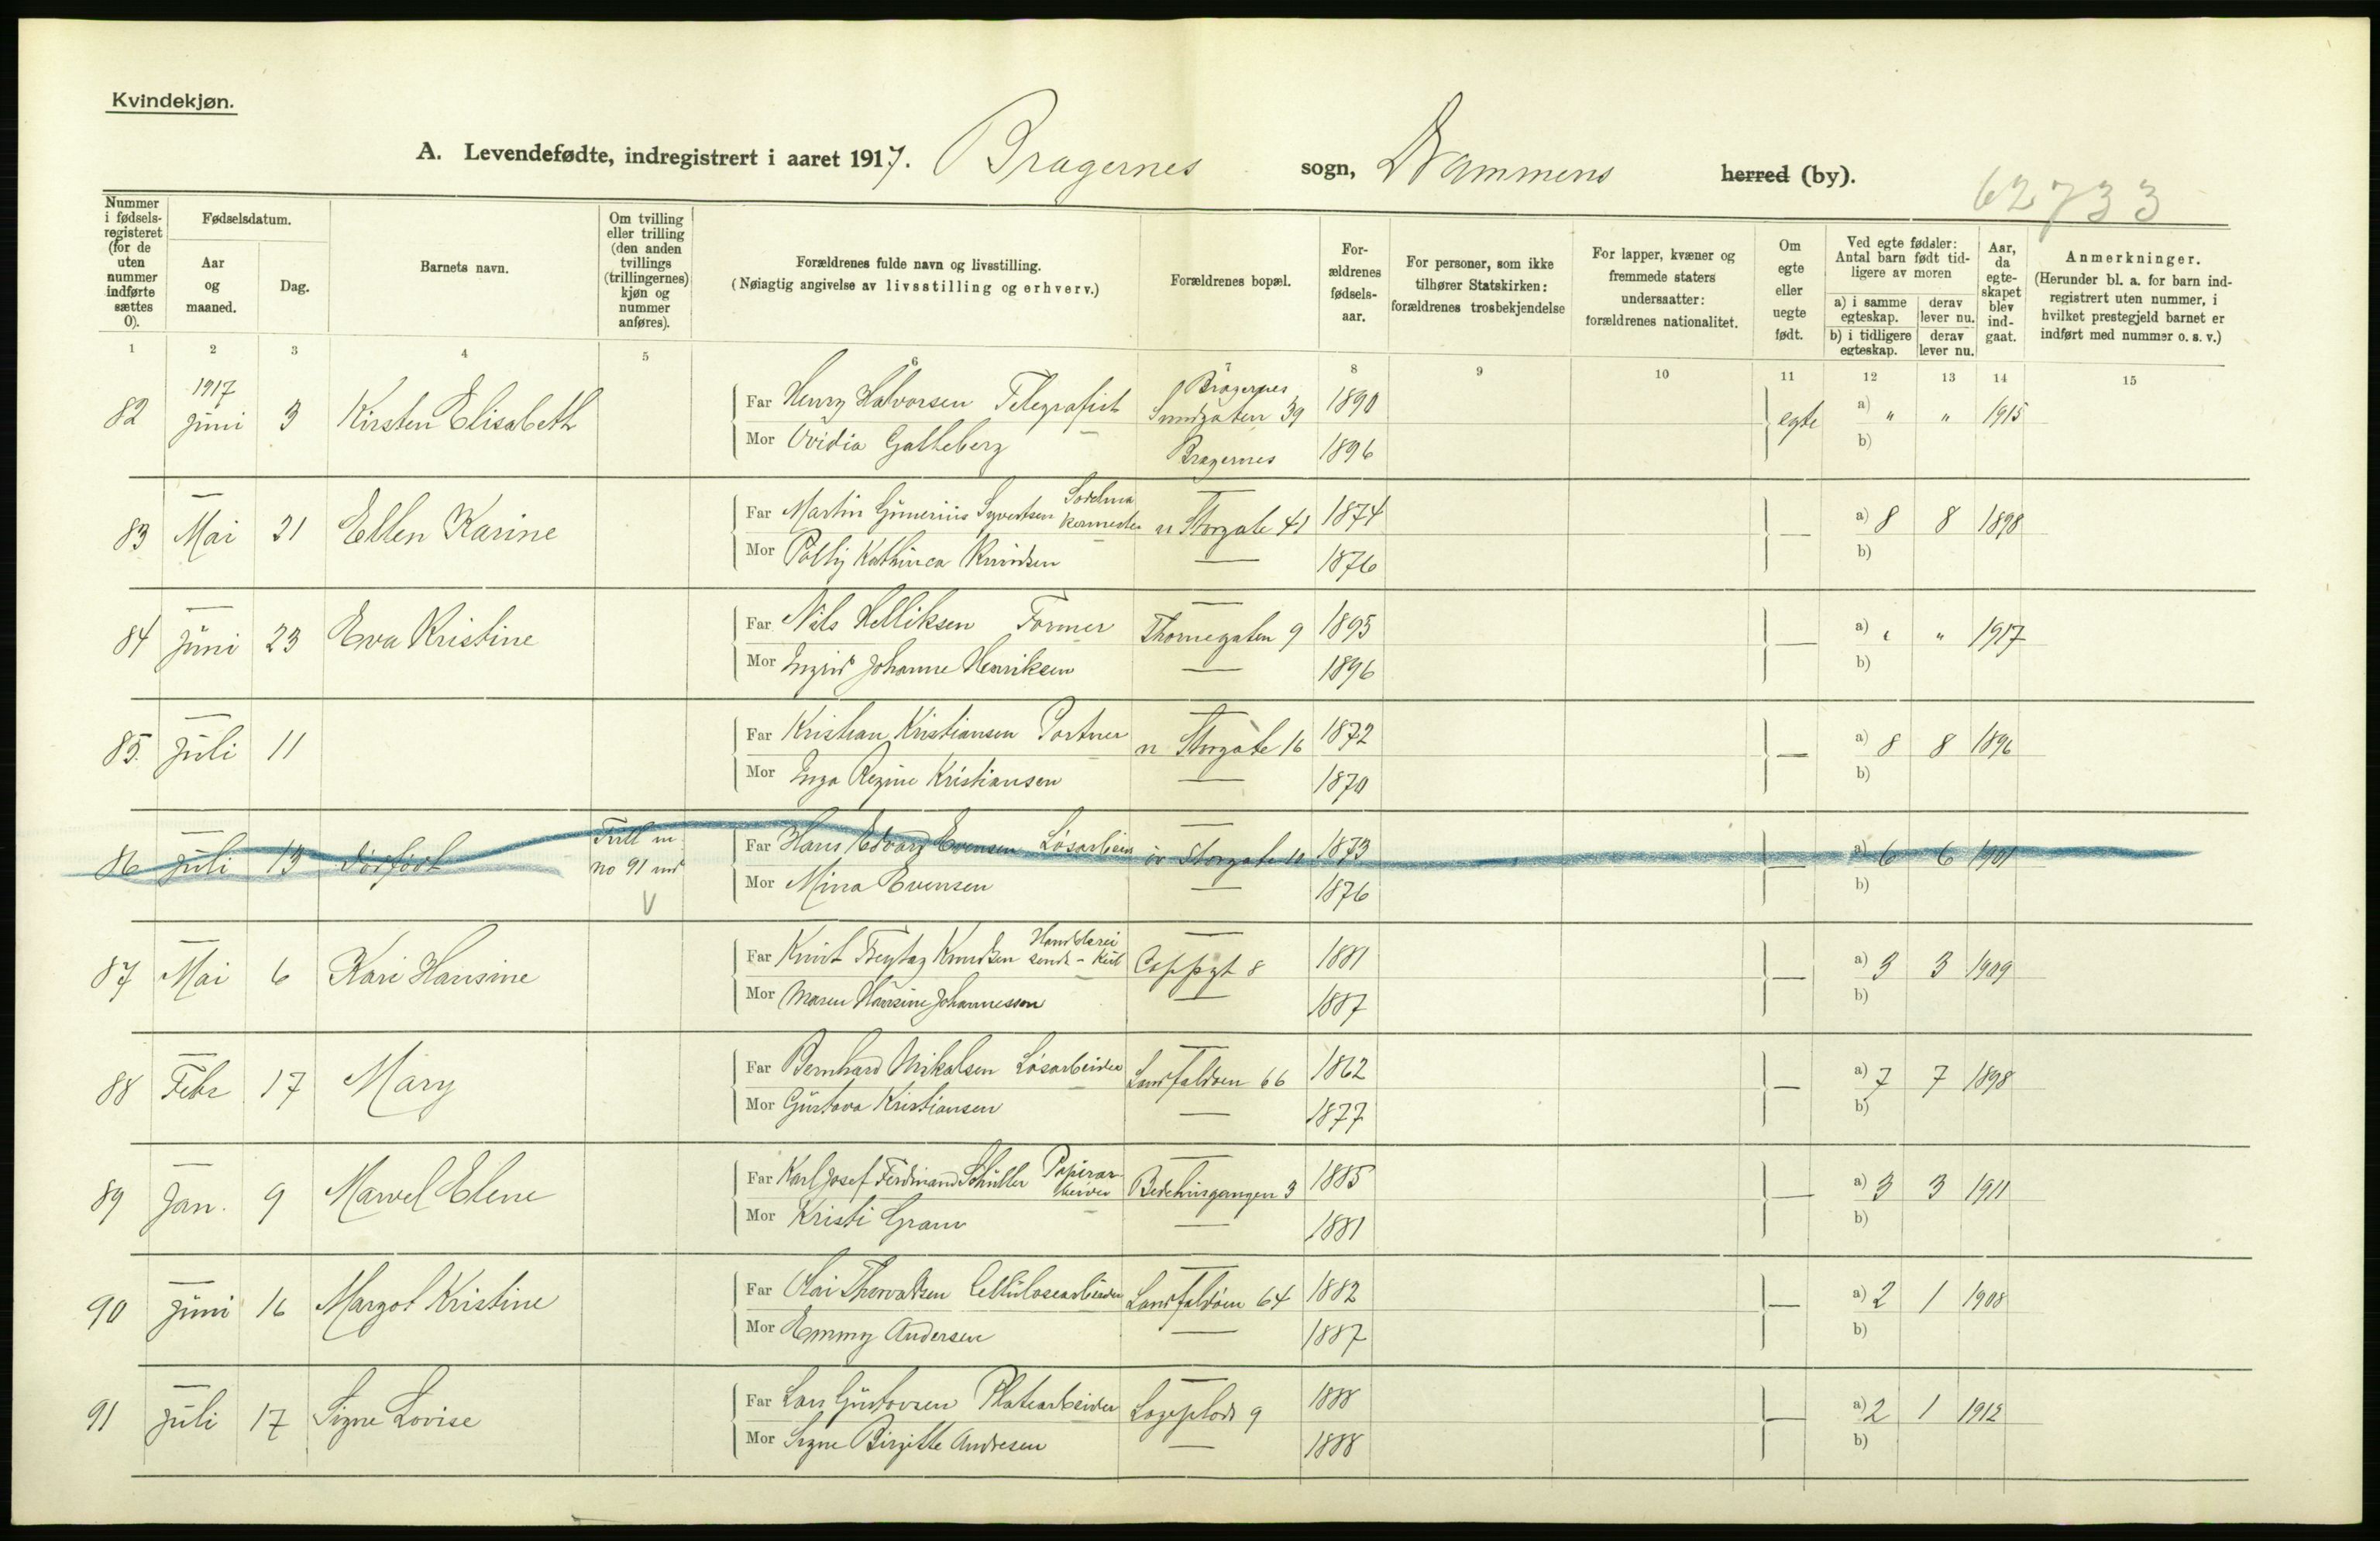 Kvindekjøn.
A. Levendefødte, indregistrert i aaret 1917. Bragernes sogn, Drammens herred (by).
62733
Nummer i fødselsregisteret (for de uten nummer indførte sættes 0).
Fødselsdatum.
Aar og maaned.
Dag.
Barnets navn.
Om tvilling eller trilling (den anden tvillings (trillingernes) kjøn og nummer anføres).
Forældrenes fulde navn og livsstilling.
(Nøiagtig angivelse av livsstilling og erhverv.)
Forældrenes bopæl.
Forældrenes fødselsaar.
For personer, som ikke tilhører Statskirken: forældrenes trosbekjendelse
For lapper, kvæner og fremmede staters undersaatter: forældrenes nationalitet.
Om egte eller uegte født.
Ved egte fødsler: Antal barn født tidligere av moren
a) i samme egteskap.
derav lever nu.
b) i tidligere egteskap.
derav lever nu.
Aar, da egteskapet blev indgaat.
Anmerkninger.
(Herunder bl. a. for barn indregistrert uten nummer, i hvilket prestegjeld barnet er indført med nummer o. s. v.)
1 2 3 4 5 6 8 9 10 11 12 13 14 15
1917
82 Juni 3 Kirsten Elisabeth Far Henry Halvorsen Telegrafist Bragernes Sundgaten 39 1890 egte a) " " 1915
Mor Ovidia Galteberg Bragernes 1896 b)
83 Mai 21 Ellen Karine Far Martin Gunerius Syvertsen n Storgate 41 1874 — a) 8 8 1898
Mor Polly Kathinca Knudsen — 1876 b)
84 Juni 23 Eva Kristine Far Nils Helliksen Former Thornegaten 9 1895 — a) " " 1917
Mor Ingrid Johanne Henriksen — 1896 b)
85. Juli 11 Far Kristian Kristiansen Portner n Storgate 16 1872 — a) 8 8 1896
Mor Inga Regine Kristiansen — 1870 b)
86 Juli 13 dødfødt no 91 Far Hans Edvard Evensen Løsarbeid øv Storgate 10 1873 — a) 6 6 1901
Mor Mina Evensen — 1876 b)
87 Mai 6 Kari Hansine Far Knut Freytag Knudsen Coppgt 8 1881 — a) 3 3 1909
Mor Maren Hansine Johannessen — 1887 b)
88 Febr 17 Mary Far Bernhard Mikalsen Løsarbeider Landfaldøen 66 1862 — a) 7 7 1898
Mor Gustava Kristiansen — 1877 b)
89 Jan. 9 Marvel Elene Far Karl Josef Ferdinand Schüller Papirarbeider Bedehusgangen 3 1885 — a) 3 3 1911
Mor Kristi Gram — 1881 b)
90 Juni 16 Margot Kristine Far Olai Thorvaldsen Cellulosearbeider Landfaldøen 64 1882 — a) 2 1 1908
Mor Emmy Andersen — 1887 b)
91 Juli 17 Signe Lovise Far Lars Gustavsen Platearbeider 9 1888 — a) 2 1 1912
Mor Signe Birgitte Andresen — 1888 b)